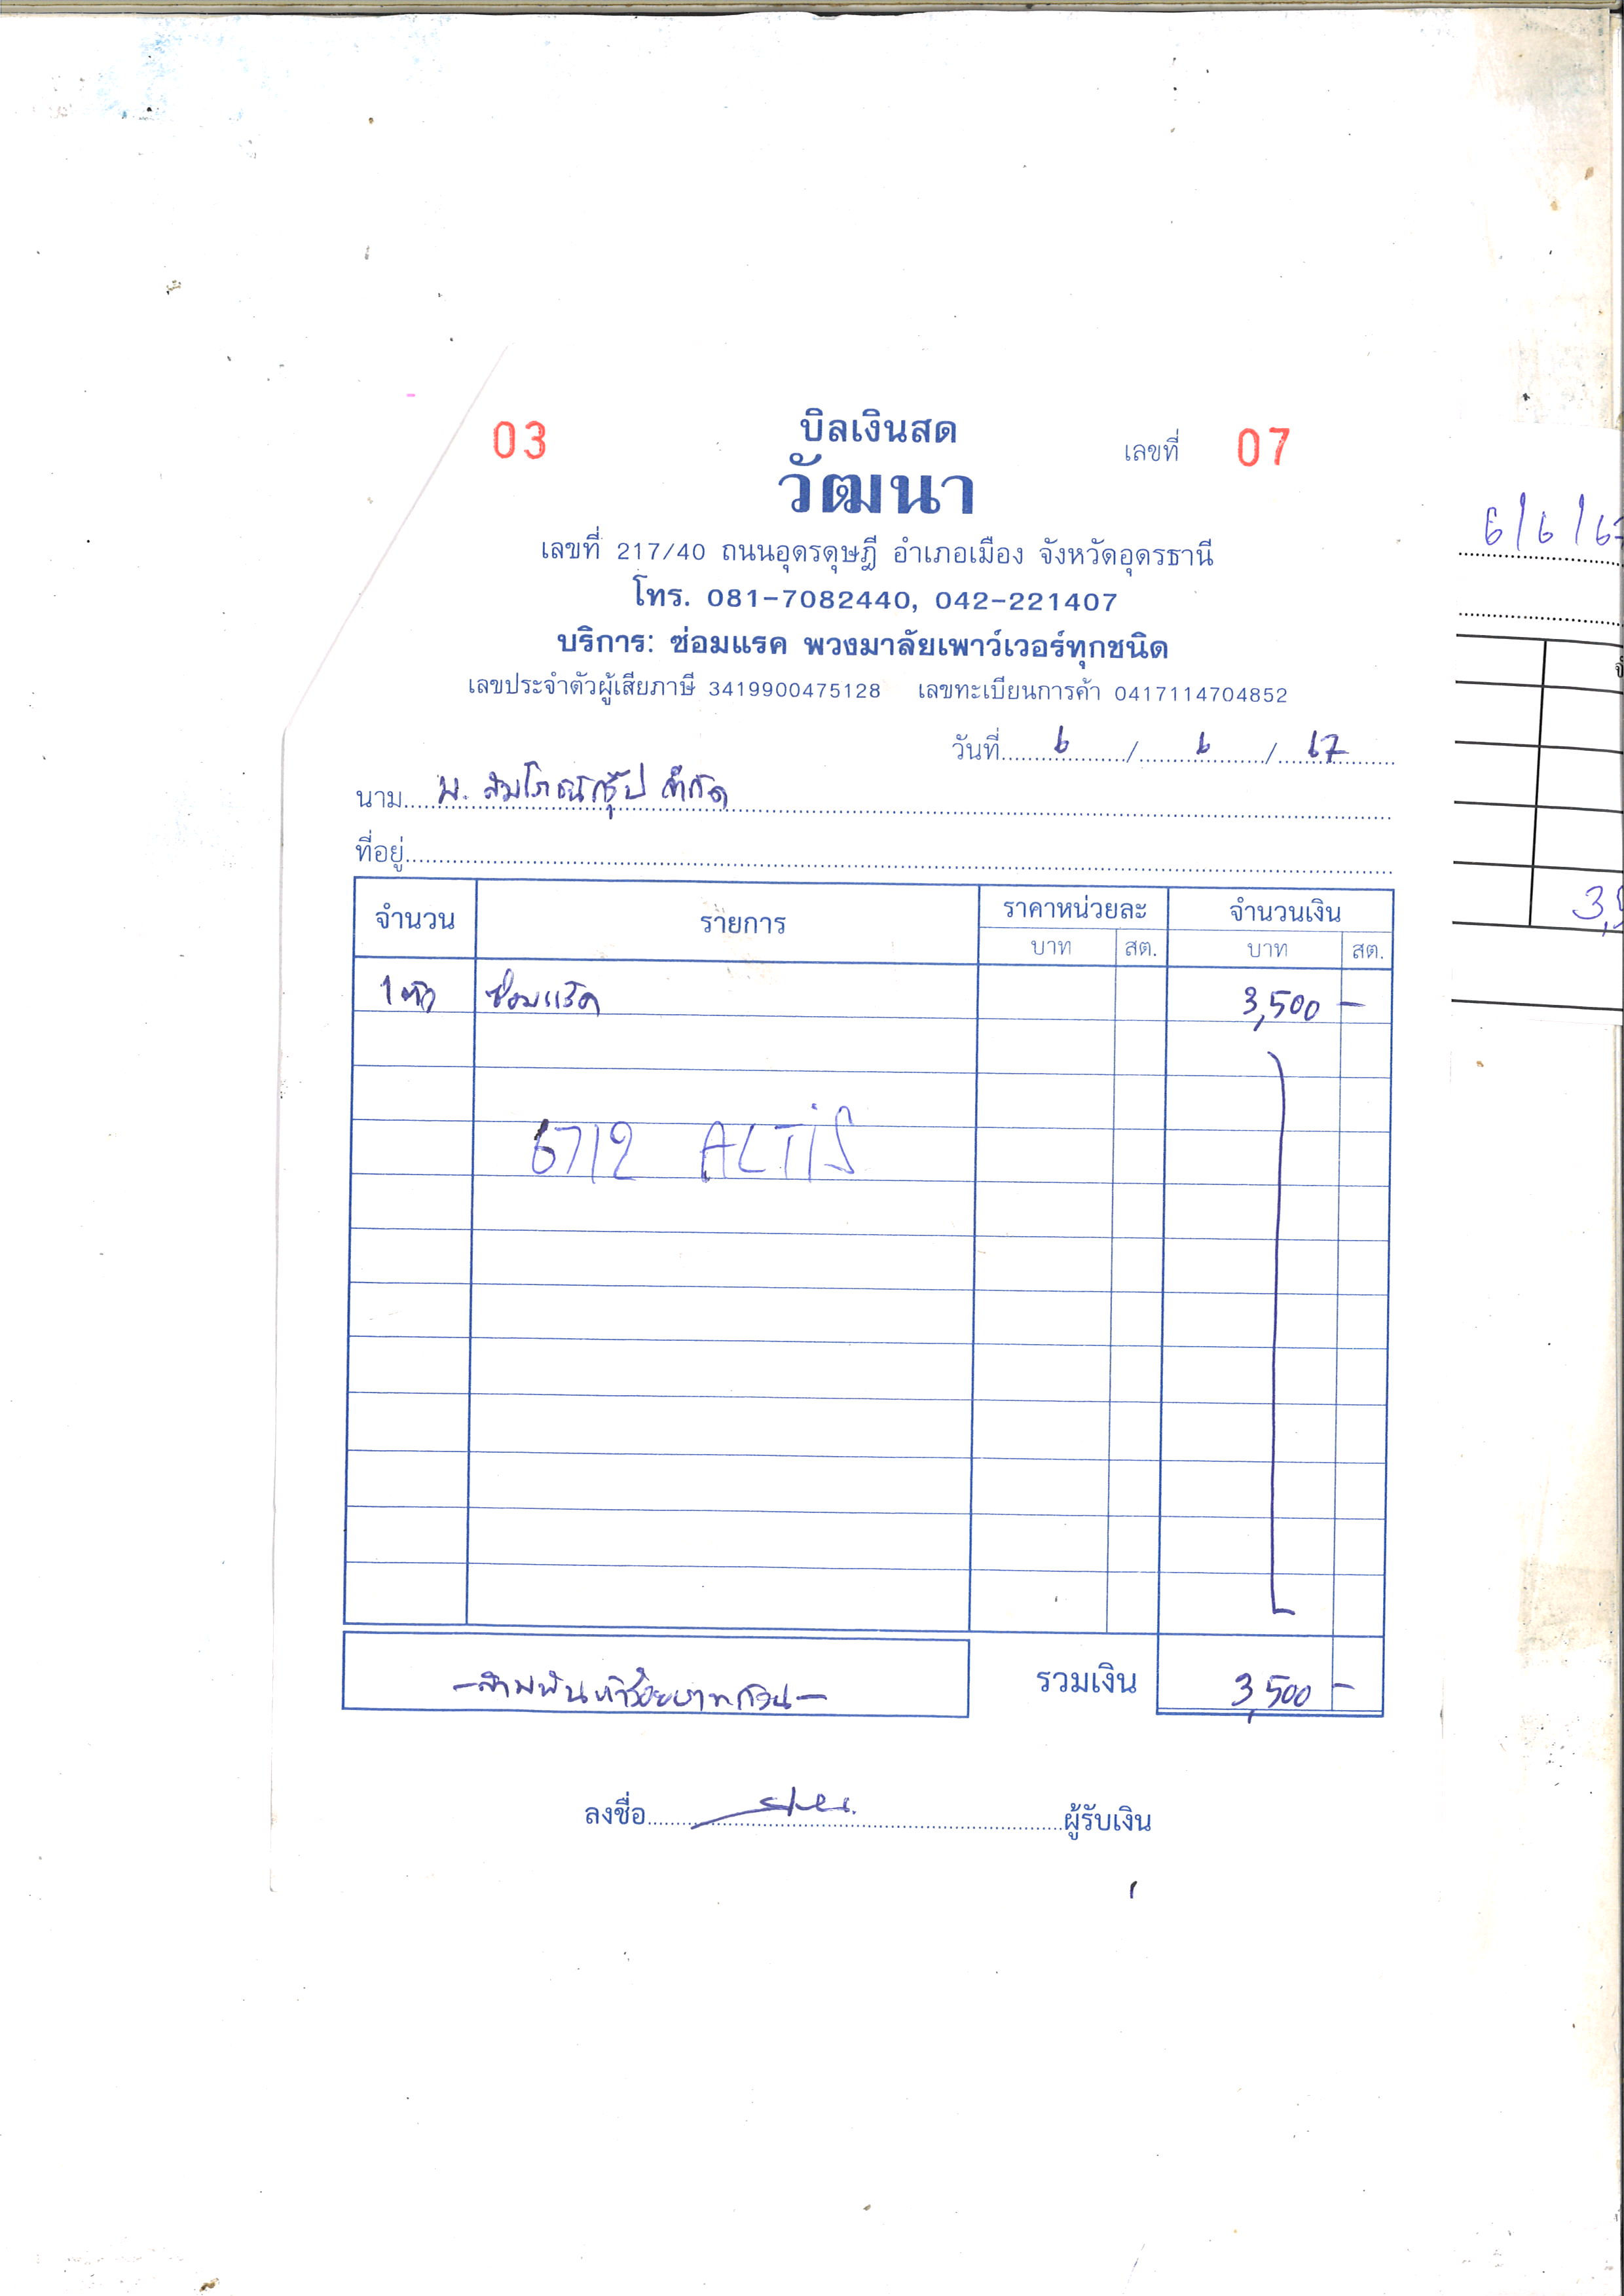 03
บิลเงินสด
เลขที่ 07
วัฒนา
เลขที่ 217/40 ถนนอุดรดุษฎี อำเภอเมือง จังหวัดอุดรธานี
โทร. 081-7082440, 042-221407
บริการ: ซ่อมแรค พวงมาลัยเพาว์เวอร์ทุกชนิด
เลขประจำตัวผู้เสียภาษี 3419900475128 เลขทะเบียนการค้า 0417114704852
วันที่ 6 / 6 / 67
นาม บ. สัมโภชน์กรุ๊ป จำกัด
ที่อยู่
จำนวน รายการ ราคาหน่วยละ จำนวนเงิน
บาท สต. บาท สต.
1 ตัว ซ่อมแร็ค 3,500 -
6712 ALTIS
- สามพันห้าร้อยบาทถ้วน - รวมเงิน 3,500 -
ลงชื่อ ผู้รับเงิน
6/6/67